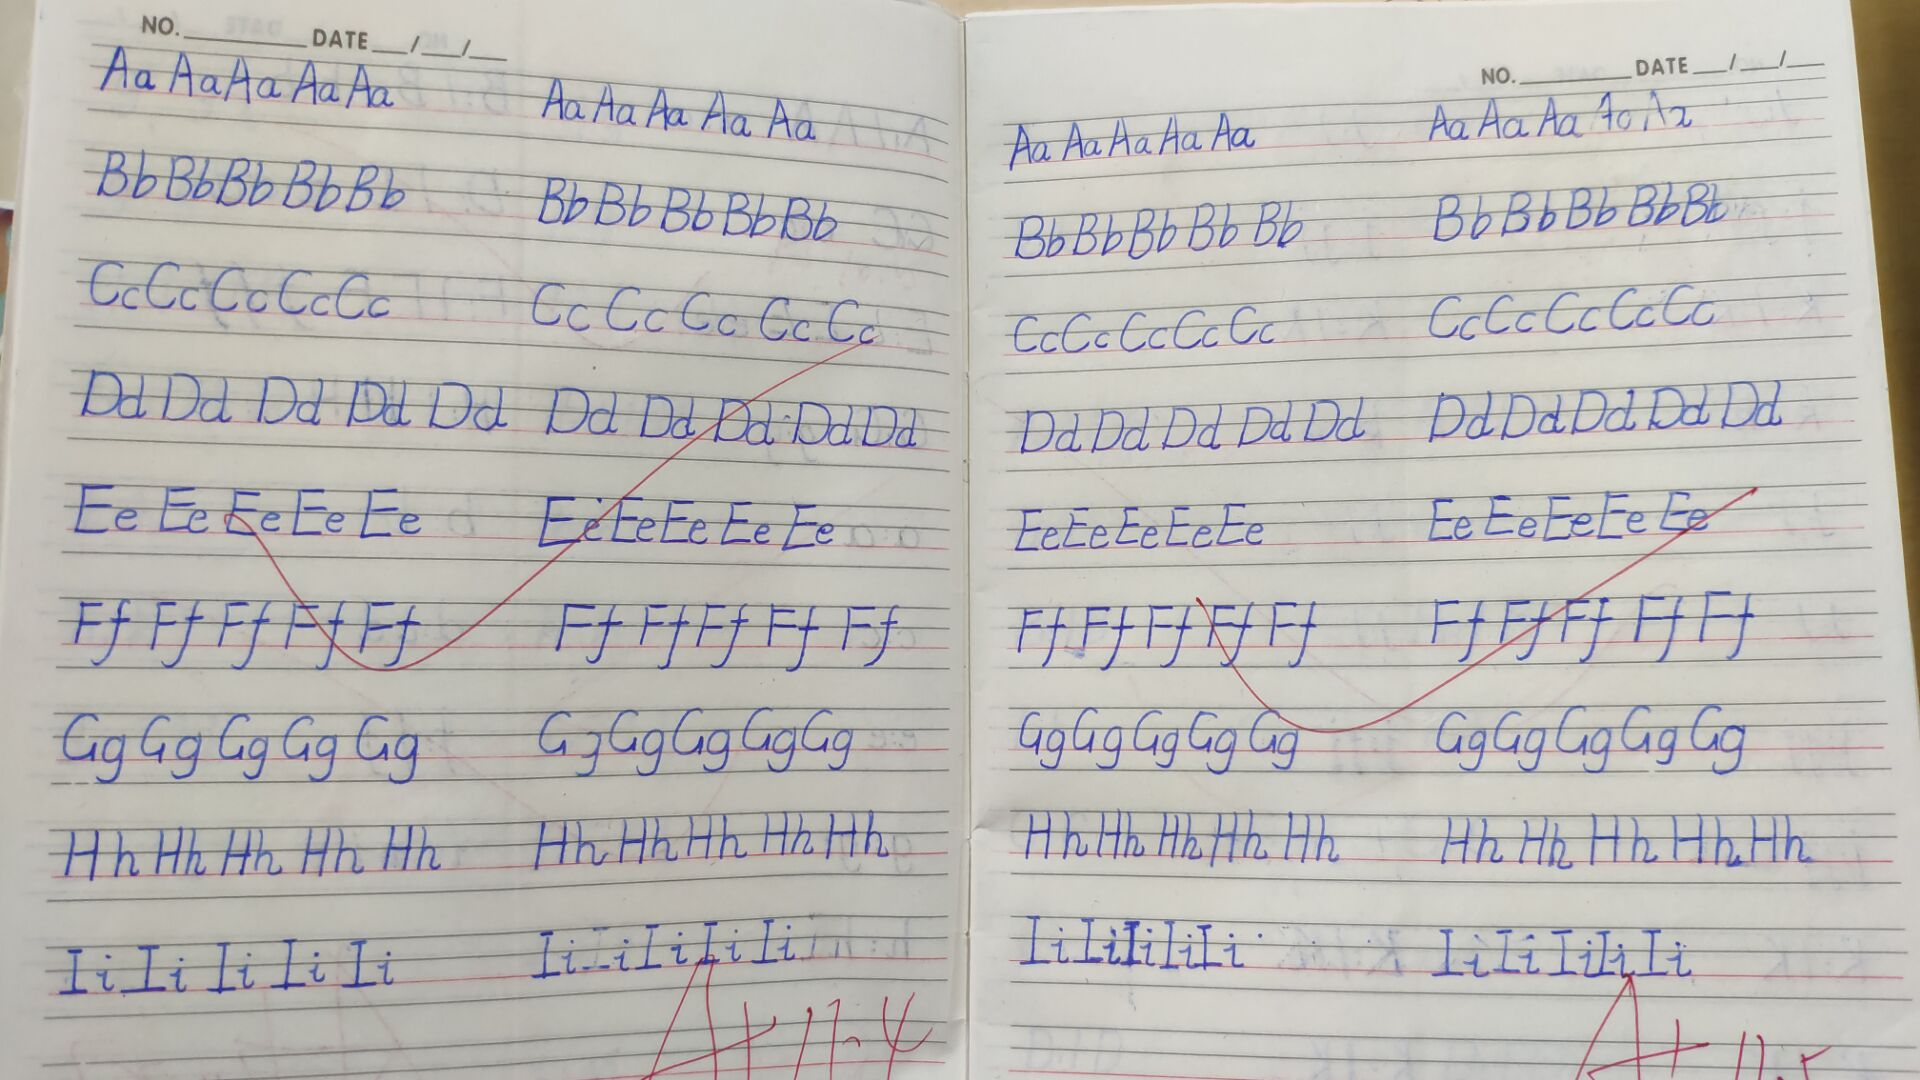 NO. DATE / /
Aa Aa Aa Aa Aa Aa Aa Aa Aa Aa
Bb Bb Bb Bb Bb Bb Bb Bb Bb Bb
Cc Cc Cc Cc Cc Cc Cc Cc Cc Cc
Dd Dd Dd Dd Dd Dd Dd Dd Dd Dd
Ee Ee Ee Ee Ee Ee Ee Ee Ee Ee
Ff Ff Ff Ff Ff Ff Ff Ff Ff Ff
Gg Gg Gg Gg Gg Gg Gg Gg Gg Gg
Hh Hh Hh Hh Hh Hh Hh Hh Hh Hh
Ii Ii Ii Ii Ii Ii Ii Ii Ii Ii
A+ 11.4
NO. DATE / /
Aa Aa Aa Aa Aa Aa Aa Aa
Bb Bb Bb Bb Bb Bb Bb Bb Bb Bb
Cc Cc Cc Cc Cc Cc Cc Cc Cc Cc
Dd Dd Dd Dd Dd Dd Dd Dd Dd Dd
Ee Ee Ee Ee Ee Ee Ee Ee Ee Ee
Ff Ff Ff Ff Ff Ff Ff Ff Ff Ff
Gg Gg Gg Gg Gg Gg Gg Gg Gg Gg
Hh Hh Hh Hh Hh Hh Hh Hh Hh Hh
Ii Ii Ii Ii Ii Ii Ii Ii Ii Ii
A+ 11.5